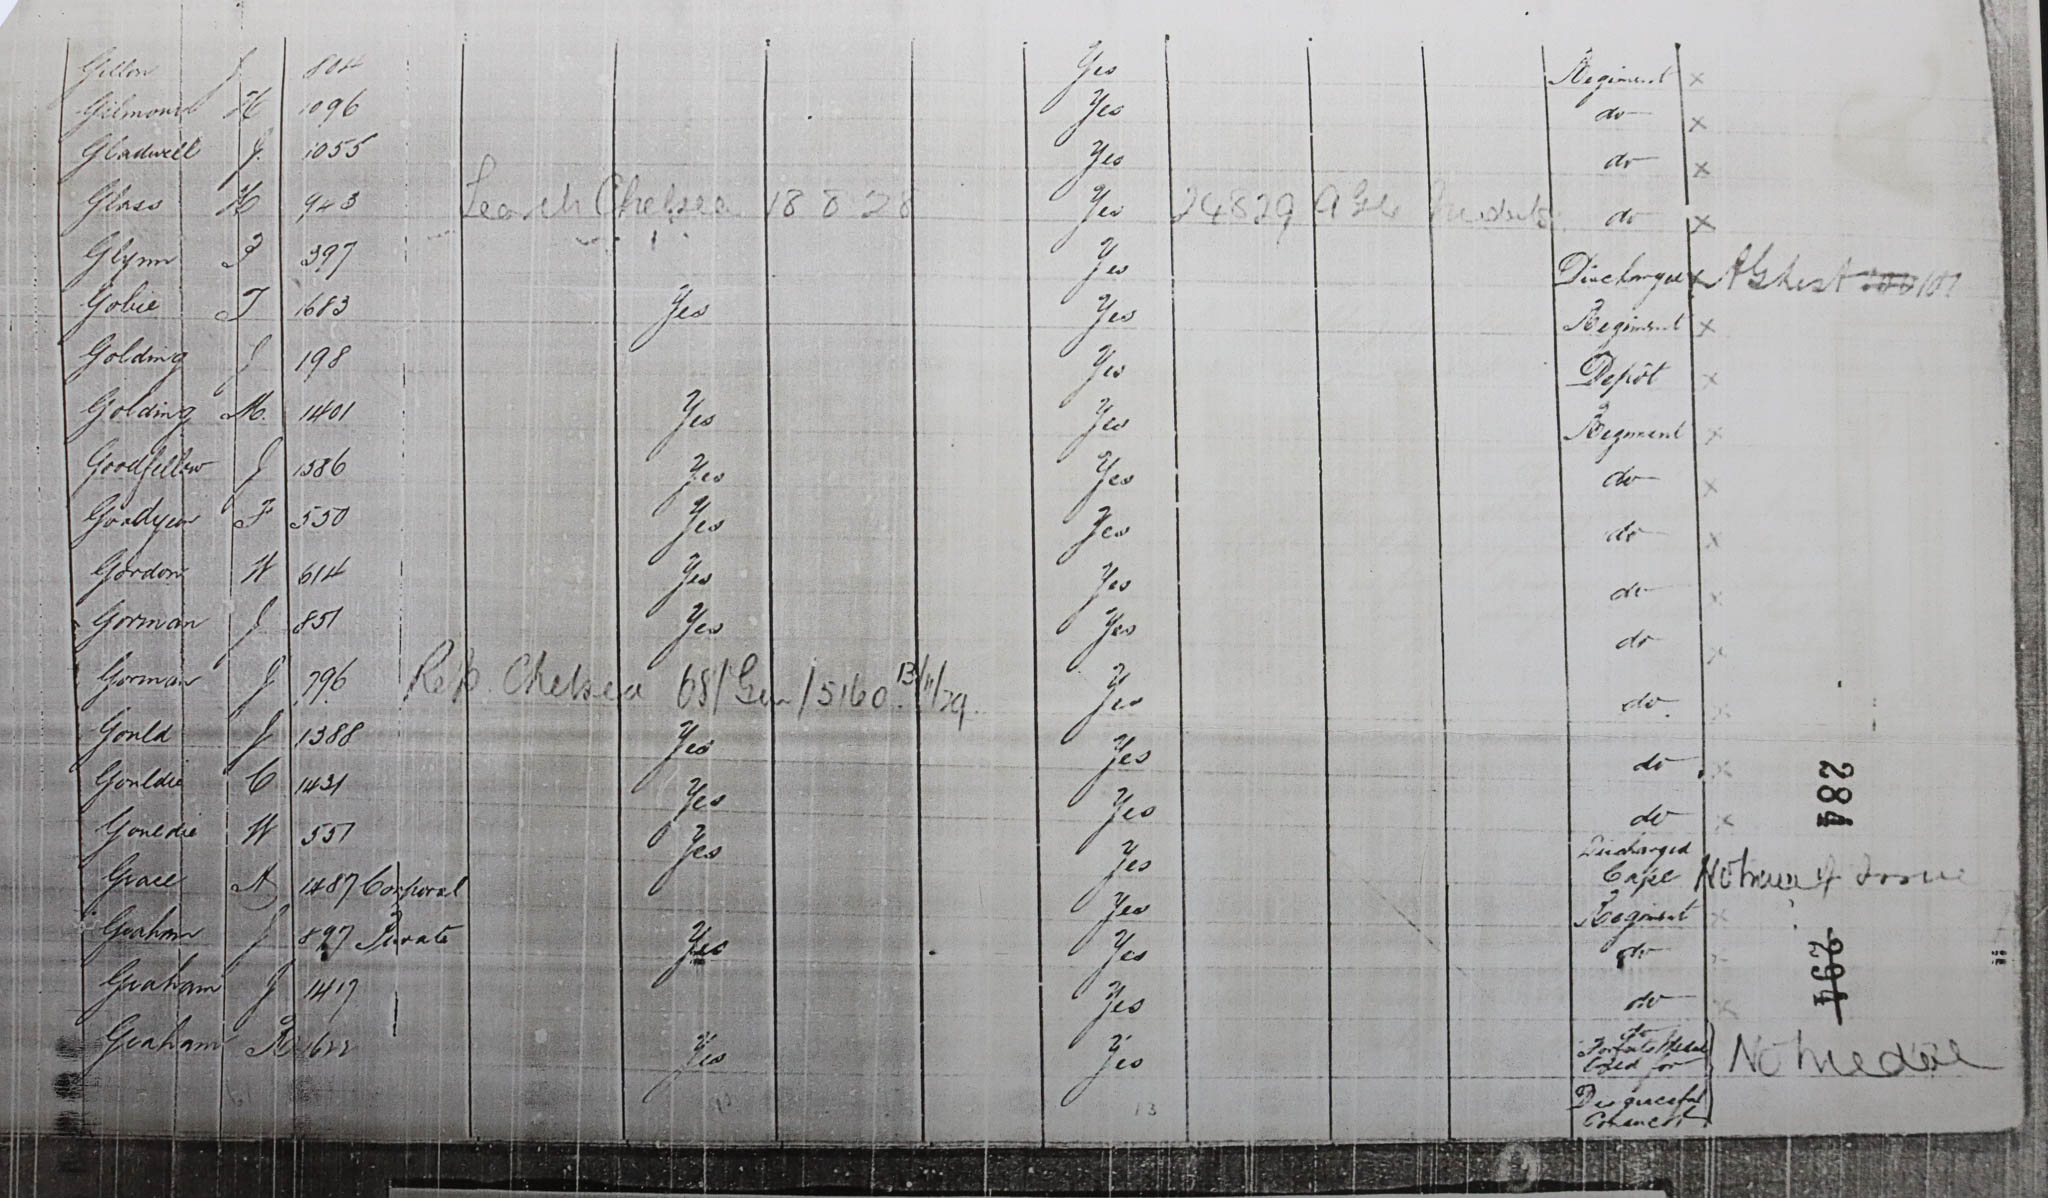 Gillon J 804 Yes Regiment x
Gilmour H 1096 Yes do x
Gladwell J. 1055 Yes do x
Glass H 943 Search Chelsea 18 8 28 Yes 24829 AG6 Medals do x
Glynn T 397 Yes Discharged x AG List 101
Gobie T 1683 Yes Yes Regiment x
Golding J 198 Yes Depôt x
Golding M. 1401 Yes Yes Regiment x
Goodfellow J 1386 Yes Yes do x
Goodyear F 550 Yes Yes do x
Gordon W 614 Yes Yes do x
Gorman J 851 Yes Yes do x
Gorman J 796 Rep. Chelsea 68/Gen/5160. 13/11/29. Yes do. x
Gould J 1388 Yes Yes do x
Gouldie C 1431 Yes Yes do x
Gouldie W 551 Yes Yes Discharged Cape No trace of Issue
Grace A 1487 Corporal Yes Regiment x
Graham J 897 Private Yes Yes do
Graham J 1417 Yes do x
Graham R 1622 Yes Yes do
Forfeits Medal
for
Disgraceful
Conduct
No Medal
284
294
13